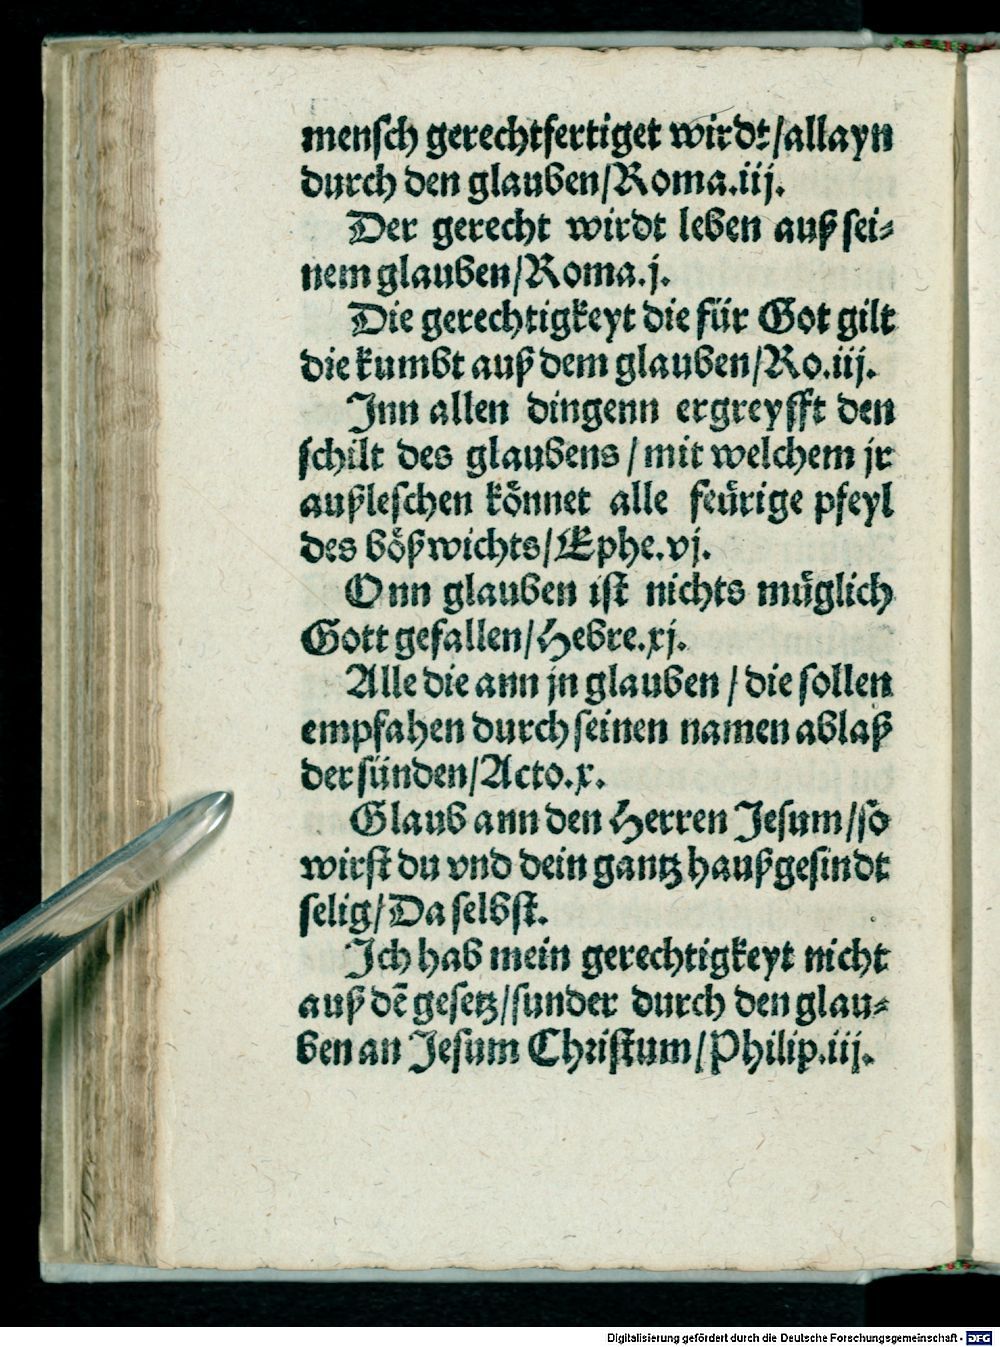 menſch gerechtfertiget wirdt/allayn
durch den glauben/Roma.iij.
Der gerecht wirdt leben auß ſei⸗
nem glauben/Roma.j.
Die gerechtigkeyt die für Got gilt
die kumbt auß dem glauben/Ro.iij.
Inn allen dingenn ergreyfft den
ſchilt des glaubens/mit welchem jr
außleſchen koͤnnet alle feuͤrige pfeyl
des boͤßwichts/Ephe.vj.
Onn glauben iſt nichts muͤglich
Gott gefallen/Hebre.xj.
Alle die ann jn glauben/die ſollen
empfahen durch ſeinen namen ablaß
der ſünden/Acto.x.
Glaub ann den Herren Jeſum/ſo
wirſt du vnd dein gantz haußgeſindt
ſelig/Da ſelbſt.
Ich hab mein gerechtigkeyt nicht
auß dē geſetz/ſunder durch den glau⸗
ben an Jeſum Chriſtum/Philip.iij.
Digitalisierung gefördert durch die Deutsche Forschungsgemeinschaft - DFG